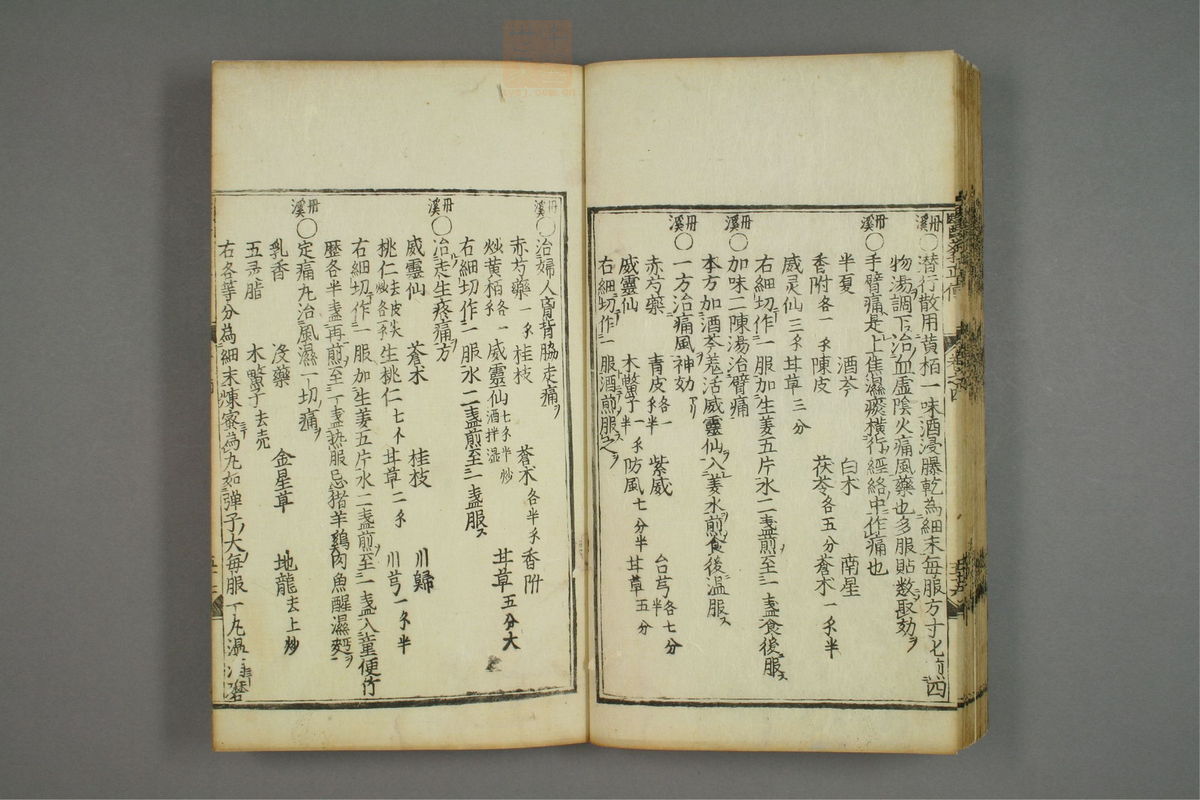 丹溪○潜行散用黄栢一味酒浸曝乾為細末毎服方寸匕煎四
物湯調下治血虚陰火痛風藥也多服貼数取効
丹溪○手臂痛是上焦濕痰横行經絡中作痛也
半夏 酒芩 白朮 南星
香附各一戔 陳皮 茯苓各五分 蒼朮一戔半
威灵仙三戔 甘草三分
右細切作一服加生姜五片水二盞煎至一盞食後服
丹溪○加味二陳湯治臂痛
本方加酒芩羗活威靈仙入姜水煎食後温服
丹溪○一方治痛風神効
赤芍藥 青皮各一戔半 紫威 台芎各七分半
威靈仙 木鱉子一戔半 防風七分半 甘草五分
右細切作一服酒煎服之
丹溪○治婦人肩背脇走痛
赤芍藥一戔 桂枝 蒼朮各半戔 香附
炒黄栢各一戔 威靈仙七戔半酒拌濕炒 甘草五分大
右細切作一服水二盞煎至一盞服
丹溪○治走生疼痛方
威靈仙 蒼朮 桂枝 川歸
桃仁去皮尖炒各一戔 生桃仁七个 甘草二戔 川芎一戔半
右細切作一服加生姜五片水二盞煎至一盞入童便竹
歴各半盞再煎至一盞熱服忌猪羊鷄肉魚醒濕麪
丹溪○定痛丸治風濕一切痛
乳香 没藥 金星草 地龍去上炒
五灵脂 木鱉子去売
右各等分為細末煉蜜為丸如弾子大毎服一丸温